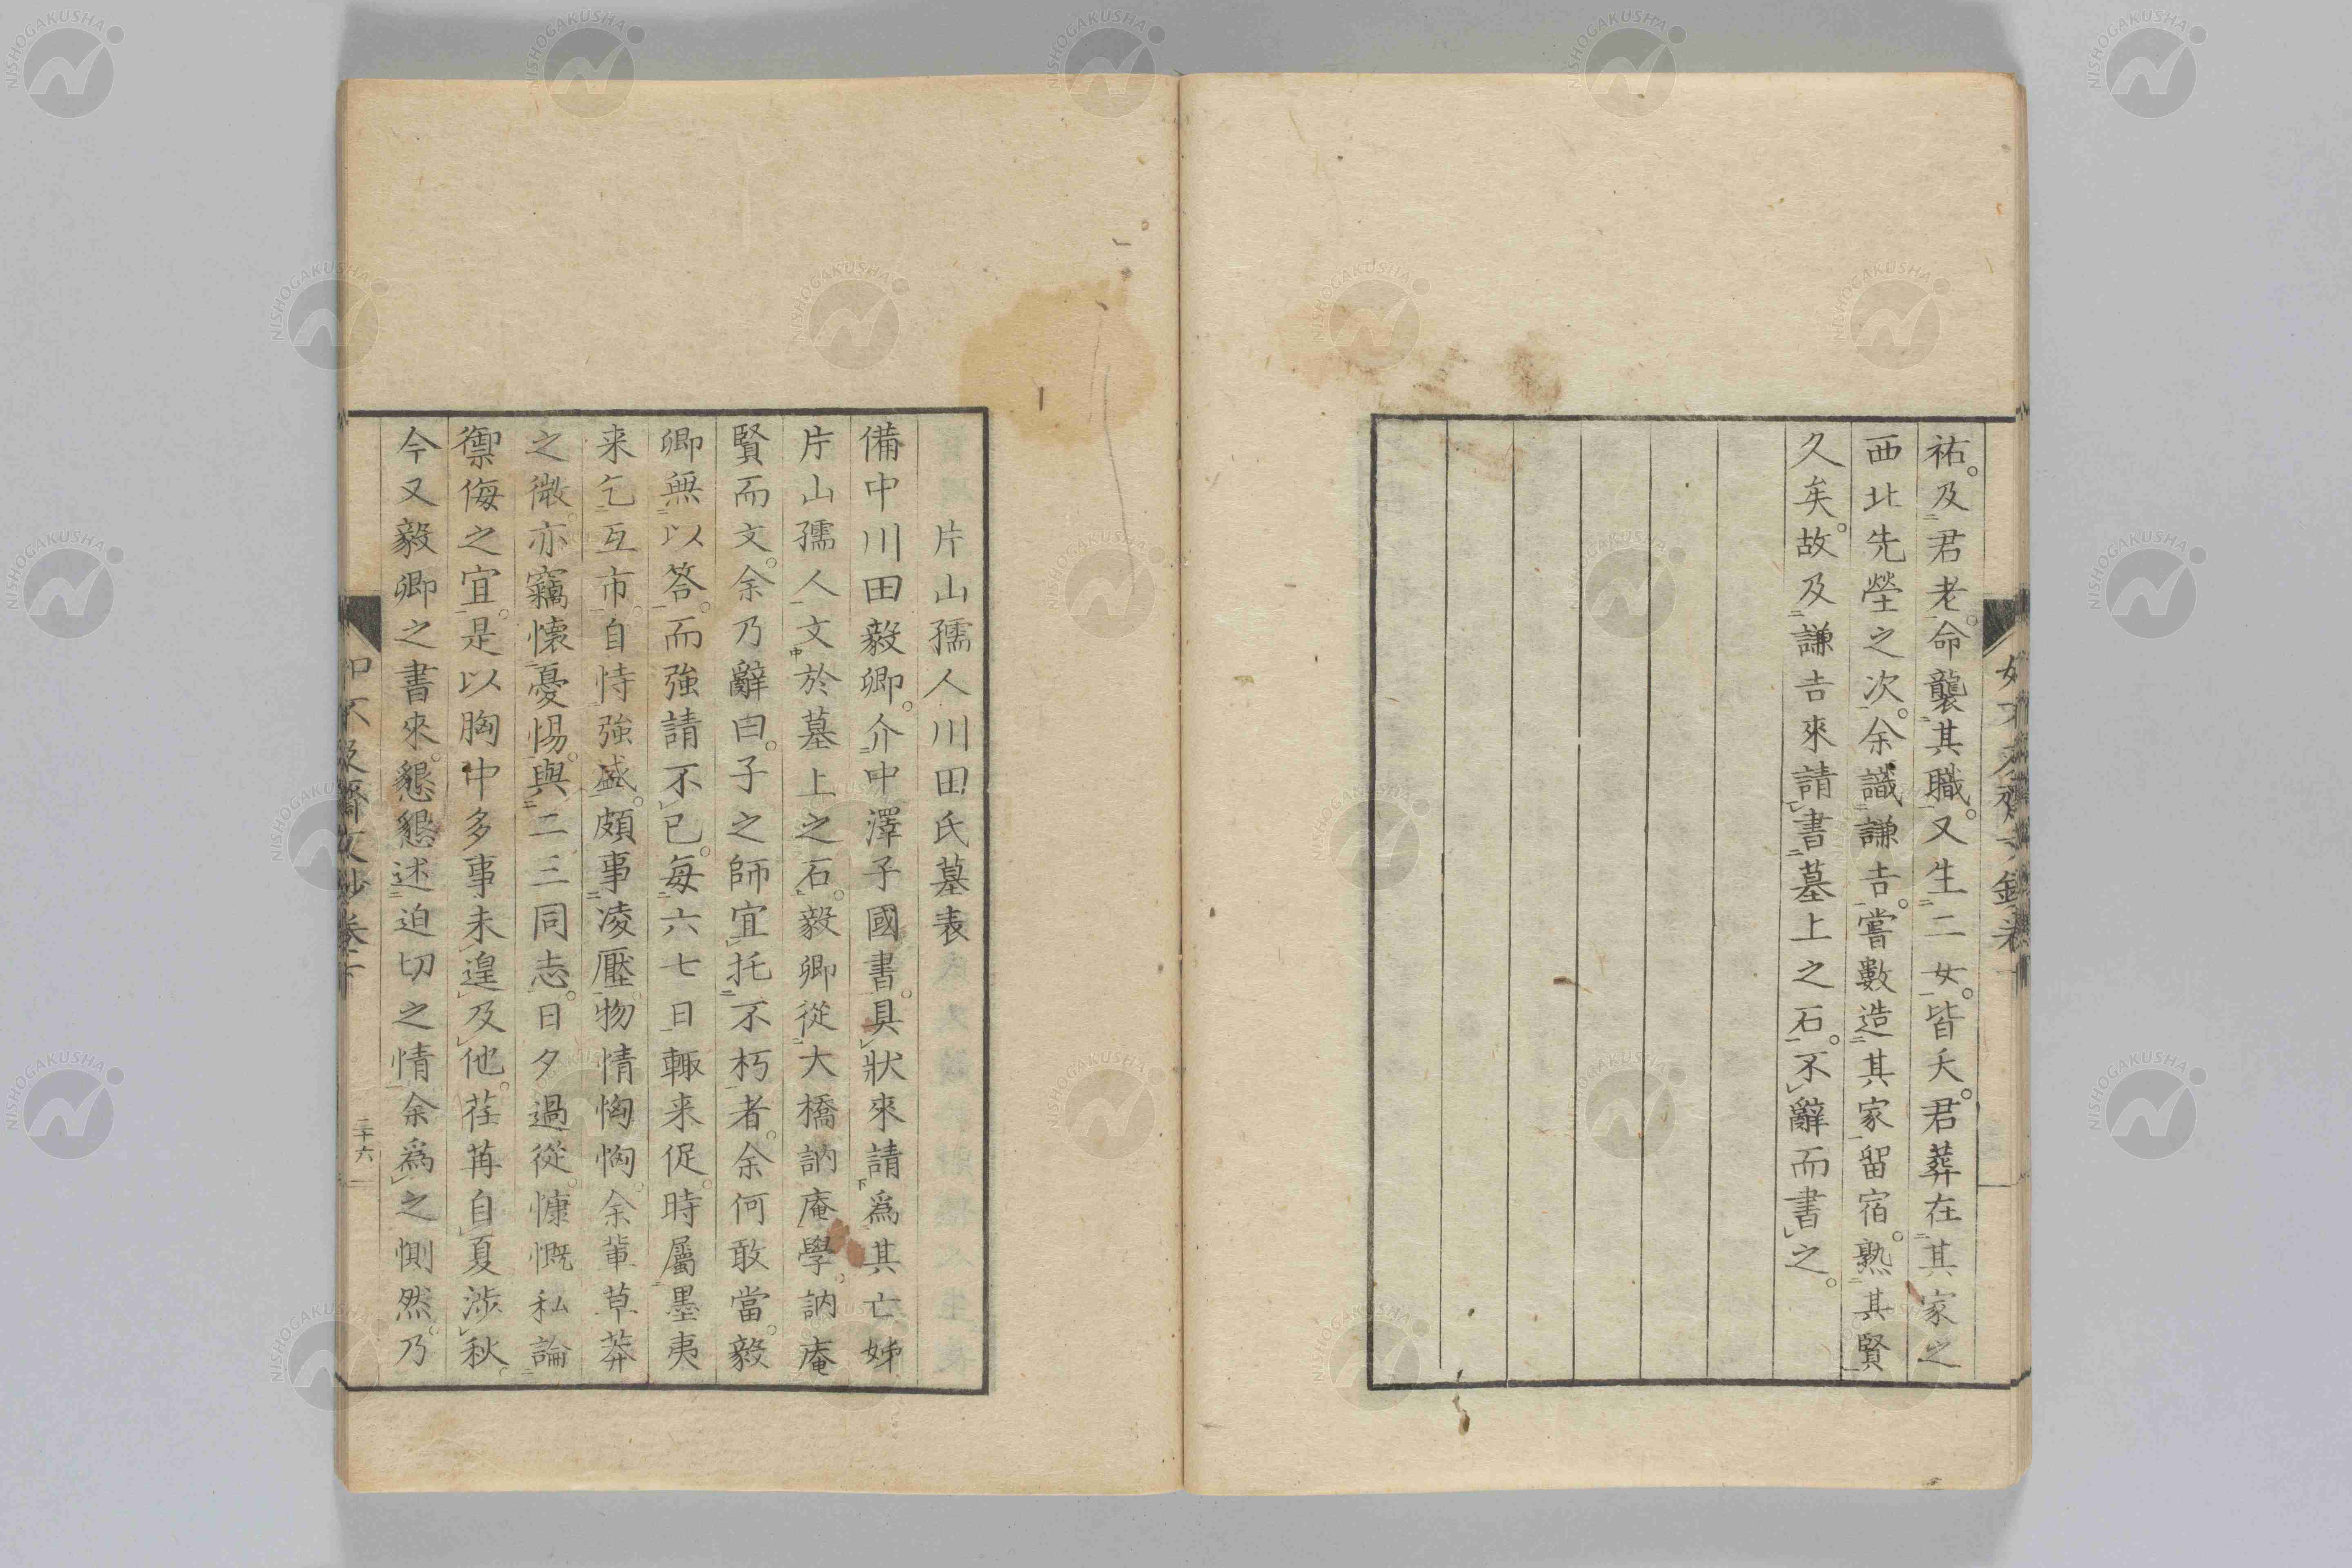 祐。及君老。命襲其職。又生二女。皆夭。君葬在其家之
西北先塋之次。余識謙吉。嘗數造其家留宿。熟其賢
久矣。故及謙吉來請書墓上之石。不辭而書之。
片山孺人川田氏墓表
備中川田毅卿。介中澤子國書。具狀來請爲其亡姊
片山孺人文於墓上之石。毅卿從大橋訥庵學。訥庵
賢而文。余乃辭曰。子之師宜托不朽者。余何敢當。毅
卿無以答。而強請不已。每六七日輙来促。時屬墨夷
来乞互市。自恃強盛。頗事凌壓。物情恟恟。余輩草莽
之微。亦竊懷憂惕。與二三同志。日夕過從。慷慨私論
禦侮之宜。是以胸中多事未遑及他。荏苒自夏涉秋。
今又毅卿之書來。懇懇述迫切之情。余爲之惻然。乃
如不及齋文鈔卷
二十六
NISHOGAKUSHA